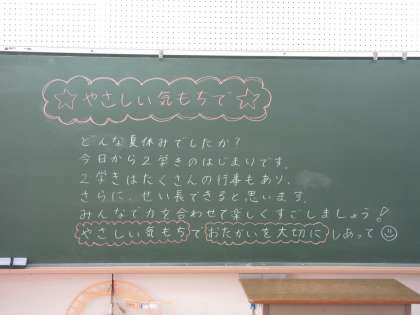 ☆やさしい気もちで☆
どんな夏休みでしたか？
今日から2学きのはじまりです。
2学きはたくさんの行事もあり、
さらに せい長できると思います。
みんなで力を合わせて楽しくすごしましょう！
やさしい気もちでおたがいを大切にしあって